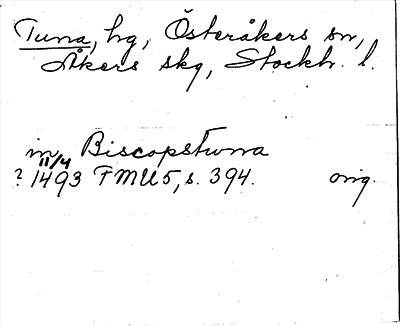 Tuna, hg, Österåkers sn,
Åkers skg, Stockh. l.
in Biscopstwna
11/4
? 1493 FMU5, s. 394. orig.